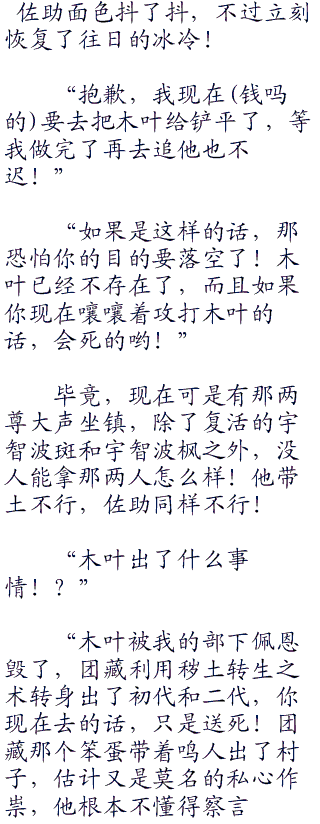 佐助面色抖了抖，不过立刻
恢复了往日的冰冷！
“抱歉，我现在(钱吗
的)要去把木叶给铲平了，等
我做完了再去追他也不
迟！”
“如果是这样的话，那
恐怕你的目的要落空了！木
叶已经不存在了，而且如果
你现在嚷嚷着攻打木叶的
话，会死的哟！”
毕竟，现在可是有那两
尊大声坐镇，除了复活的宇
智波斑和宇智波枫之外，没
人能拿那两人怎么样！他带
土不行，佐助同样不行！
“木叶出了什么事
情！？”
“木叶被我的部下佩恩
毁了，团藏利用秽土转生之
术转身出了初代和二代，你
现在去的话，只是送死！团
藏那个笨蛋带着鸣人出了村
子，估计又是莫名的私心作
祟，他根本不懂得察言